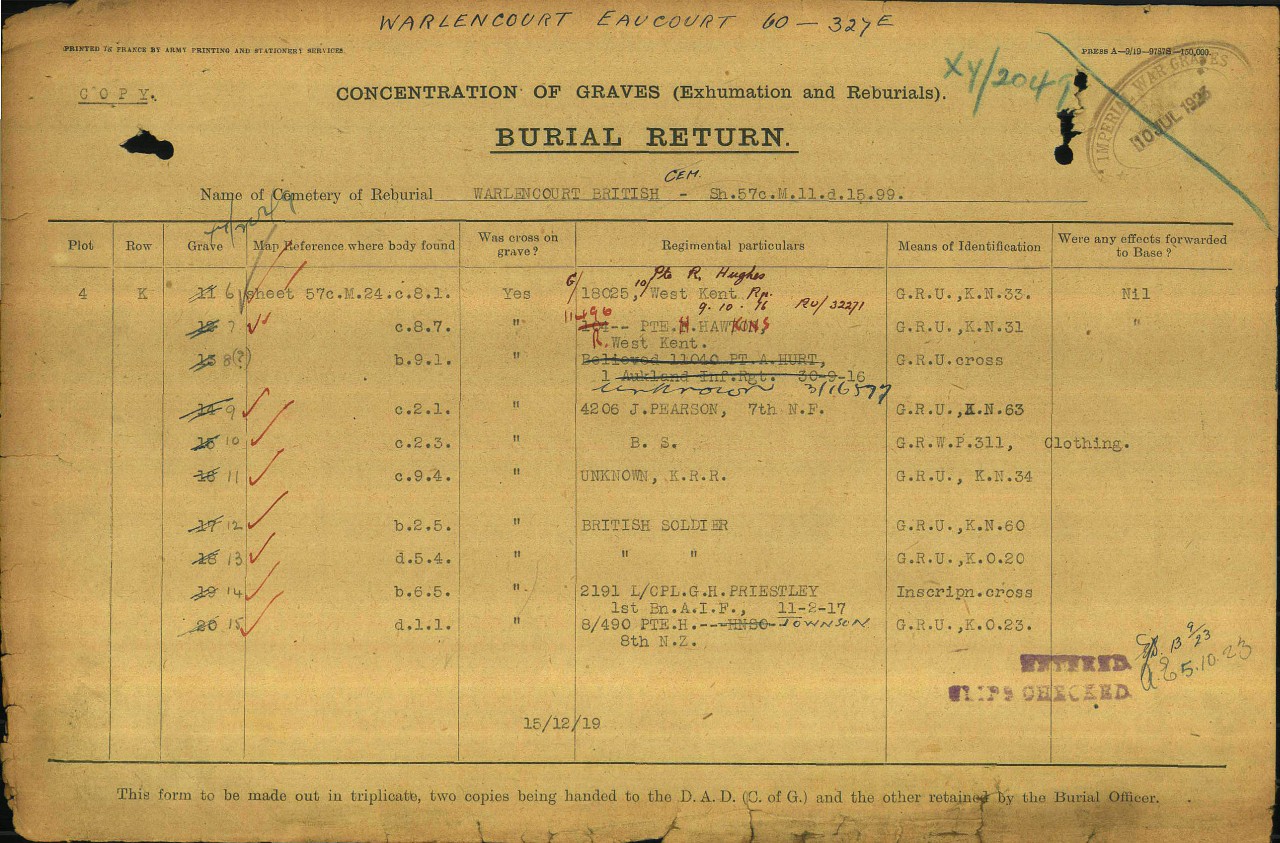 WARLENCOURT EAUCOURT 60 - 327E
PRINTED IN FRANCE BY ARMY PRINTING AND STATIONERY SERVICES.
PRESS A—9/19—9787S—150,000.
COPY.
XY/2049
IMPERIAL WAR GRAVES
10 JUL 1923
CONCENTRATION OF GRAVES (Exhumation and Reburials).
BURIAL RETURN.
CEM.
Name of Cemetery of Reburial WARLENCOURT BRITISH - Sh.57c.M.11.d.15.99.
Plot Row Grave Map Reference where body found Was cross on grave? Regimental particulars Means of Identification Were any effects forwarded to Base?
Pte R. Hughes
4 K 11 6 sheet 57c.M.24.c.8.1. Yes G/18025, 10/West Kent Rn. G.R.U.,K.N.33. Nil
9.10.16 RU/32271
11496
12 7 c.8.7. " 134-- PTE.H.HAWKINS, G.R.U.,K.N.31 "
R. West Kent.
13 8(?) b.9.1. " Believed 11040 PT.A.HURT, G.R.U.cross
1 Aukland Inf.Rgt. 30-9-16
unknown 3/16577
14 9 c.2.1. " 4206 J.PEARSON, 7th N.F. G.R.U.,K.N.63
15 10 c.2.3. " B. S. G.R.W.P.311, Clothing.
16 11 c.9.4. " UNKNOWN, K.R.R. G.R.U., K.N.34
17 12 b.2.5. " BRITISH SOLDIER G.R.U.,K.N.60
18 13 d.5.4. " " " G.R.U.,K.O.20
19 14 b.6.5. " 2191 L/CPL.G.H.PRIESTLEY Inscripn.cross
1st Bn.A.I.F., 11-2-17
20 15 d.1.1. " 8/490 PTE.H.---HNSO- JOWNSON G.R.U.,K.O.23.
8th N.Z.
13 9/23
5.10.23
CHECKED.
15/12/19
This form to be made out in triplicate, two copies being handed to the D.A.D. (C. of G.) and the other retained by the Burial Officer.